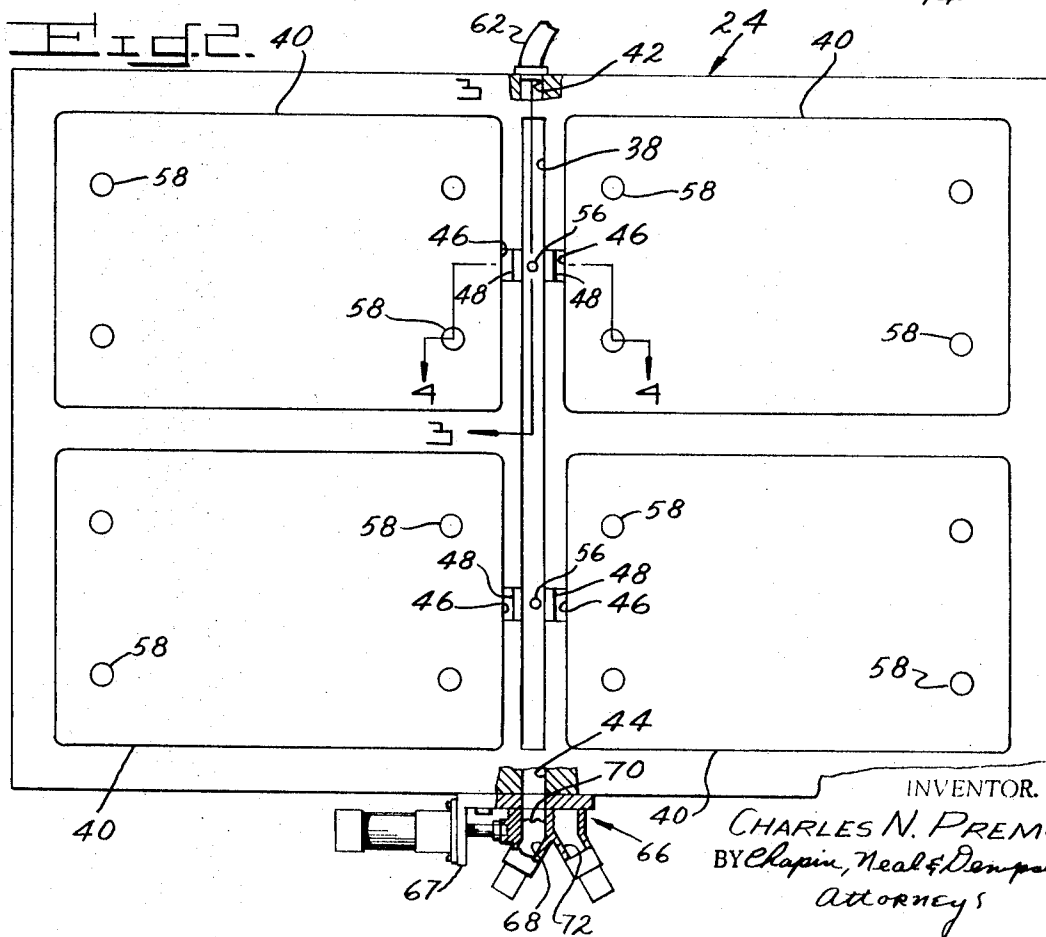 Fig. 2.
62
24
40
40
42
3
38
58
58
56
46
46
48
48
58
58
4
4
3
58
58
48
56
48
46
46
58
58
44
70
40
40
66
67
68
72
INVENTOR.
CHARLES N. PREM
BY Chapin, Neal &
Attorneys